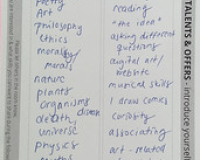 Poetry
Art
philosophy
ethics
morality/
morals
nature
plants
organisms
death, disease
universe
physics
reading
"the idea"
asking different
questions
digital art/
website
musical skills
I draw comics
curiosity
associating
art-related
TALENTS & OFFERS - introduce yourself